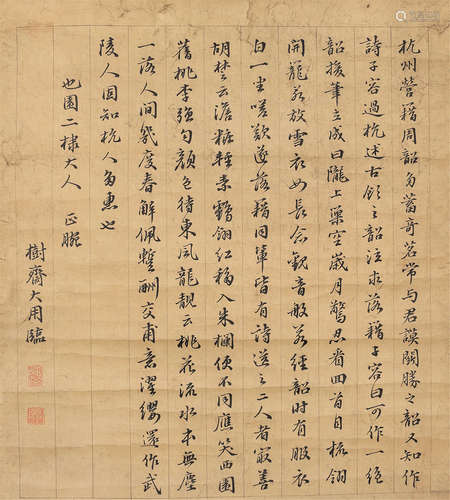 杭州營籍周韶多蓄奇茗常与君謨鬬勝之韶又知作
詩子容過杭述古飲之韶泣求落籍子容曰可作一絕
韶援筆立成曰隴上巢空歲月驚忍看回首自梳翎
開籠若放雪衣女長念觀音般若經韶時有服衣
白一坐嗟歎遂落籍同輩皆有詩送之二人者最善
胡楚云澹粧輕素鶴翎紅移入朱欄便不同應笑西園
舊桃李強勻顏色待東風龍靚云桃花流水本無塵
一落人間幾度春解佩暫酬交甫意濯纓還作武
陵人固知杭人多惠也
也園二棣大人 正腕
樹齋大用臨